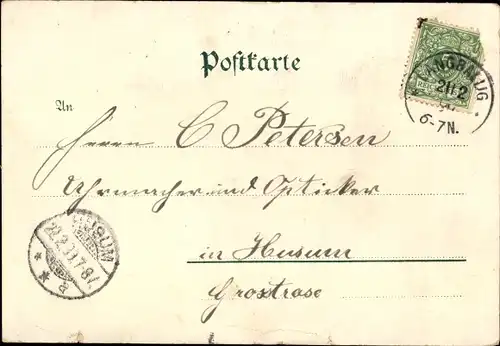 Postkarte
An
Herrn C Petersen
Uhrmacher und Optiker
in Husum
Grostrase
HUSUM
22.2.
7-8V.
* *
20 2
6-7N.